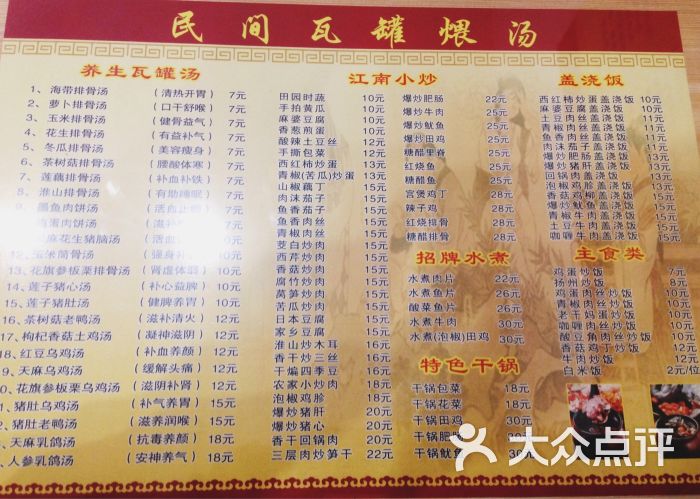 民间瓦罐煨汤
养生瓦罐汤
1、海带排骨汤 （清热开胃） 7元
2、萝卜排骨汤 （口干舒喉） 7元
3、玉米排骨汤 （健骨益气） 7元
4、花生排骨汤 （有益补气） 7元
5、冬瓜排骨汤 （美容瘦身） 7元
6、茶树菇排骨汤 （腰酸体寒） 7元
7、莲藕排骨汤 （补血补铁） 7元
8、淮山排骨汤 （有助睡眠） 7元
9、墨鱼肉饼汤 （活血 7元
蛋肉饼汤 （滋补 7元
麻花生猪脑汤 （活血 7元
玉米筒骨汤 （强身补 7元
13、花旗参板栗排骨汤 （肾虚体弱） 10元
14、莲子猪心汤 （补心益脾） 10元
15、莲子猪肚汤 （健脾养胃） 10元
16、茶树菇老鸭汤 （滋补清火） 12元
17、枸杞香菇土鸡汤 （凝神滋阴） 12元
18、红豆乌鸡汤 （补血养颜） 12元
9、天麻乌鸡汤 （缓解头痛） 12元
0、花旗参板栗乌鸡汤 （滋阴补肾） 12元
1、猪肚乌鸡汤 （补气养胃） 15元
2、猪肚老鸭汤 （滋养润喉） 15元
、天麻乳鸽汤 （抗毒养颜） 18元
、人参乳鸽汤 （安神养气） 18元
江南小炒
田园时蔬 10元
手拍黄瓜 10元
麻婆豆腐 10元
香葱煎蛋 10元
酸辣土豆丝 12元
手撕包菜 12元
西红柿炒蛋 13元
青椒(苦瓜)炒蛋 13元
山椒藕丁 15元
肉沫茄子 15元
鱼香茄子 15元
鱼香肉丝 15元
青椒肉丝 15元
茭白炒肉 15元
西芹炒肉 15元
香菇炒肉 15元
腐竹炒肉 15元
莴笋炒肉 15元
苦瓜炒肉 15元
日本豆腐 15元
家乡豆腐 15元
淮山炒木耳 16元
香干炒三丝 16元
干煸四季豆 16元
农家小炒肉 18元
泡椒鸡胗 18元
爆炒猪肝 20元
爆炒猪心 20元
香干回锅肉 20元
三层肉炒笋干 22元
爆炒肥肠 22元
爆炒牛肉 25元
爆炒鱿鱼 25元
爆炒田鸡 25元
糖醋里脊 25元
红烧鱼 25元
糖醋鱼 25元
宫煲鸡丁 28元
辣子鸡 28元
红烧排骨 28元
糖醋排骨 28元
招牌水煮
水煮肉片 22元
水煮鱼片 26元
酸菜鱼片 26元
水煮牛肉 30元
水煮(泡椒)田鸡 30元
特色干锅
干锅包菜 18元
干锅花菜 18元
干锅田鸡 30元
干锅肥肠 30元
干锅鱿鱼 30元
盖浇饭
西红柿炒蛋盖浇饭 10元
麻婆豆腐盖浇饭 10元
土豆肉丝盖浇饭 11元
青椒肉丝盖浇饭 11元
鱼香肉丝盖浇饭 11元
肉沫茄子盖浇饭
爆炒肥肠盖浇饭
爆炒猪肝盖浇饭
回锅肉盖浇饭
泡椒鸡胗盖浇饭
香菇鸡柳盖浇饭
爆炒鱿鱼盖浇饭
青椒牛肉盖浇饭 15元
土豆牛肉盖浇饭 15元
咖喱牛肉盖浇饭 15元
主食类
鸡蛋炒饭 7元
扬州炒饭 8元
鸡蛋肉丝炒饭
青椒肉丝炒饭
老干妈蛋炒饭
咖喱肉丝炒饭
酸豆角肉丝炒饭
香菇鸡丁炒饭
牛肉炒饭 12元
白米饭 2元/位
大众点评